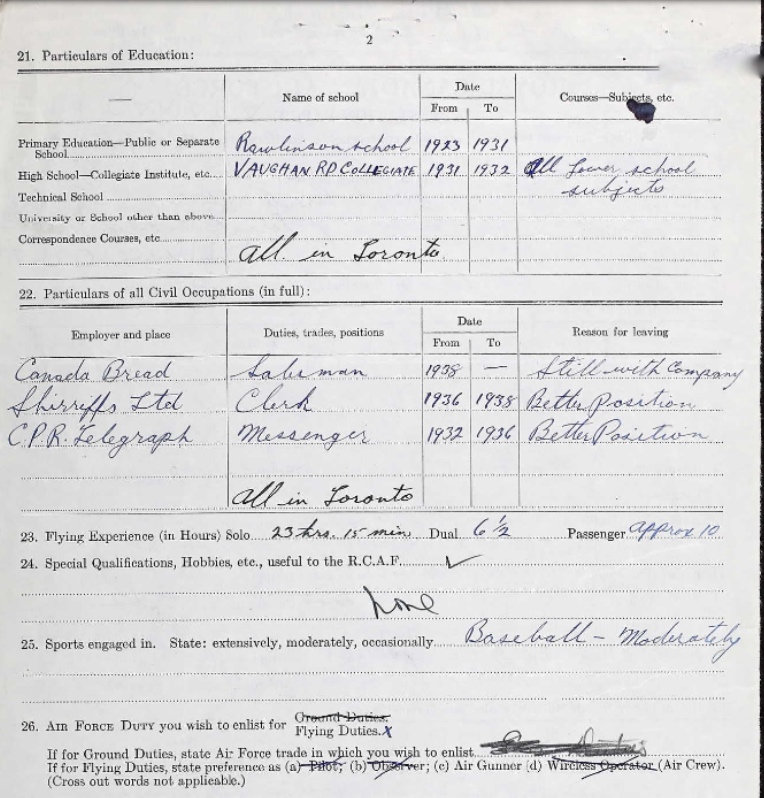 2
21. Particulars of Education:
Name of school
Date
Courses—Subjects, etc.
From To
Primary Education—Public or Separate
School Rawlinson school 1923 1931
High School—Collegiate Institute, etc. VAUGHAN RD COLLEGIATE 1931 1932 All Lower school
subjects
Technical School
University or School other than above
Correspondence Courses, etc
All in Toronto
22. Particulars of all Civil Occupations (in full):
Employer and place Duties, trades, positions
Date
Reason for leaving
From To
Canada Bread Salesman 1938 — Still with Company
Shirriffs Ltd Clerk 1936 1938 Better Position
C.P.R. Telegraph Messenger 1932 1936 Better Position
All in Toronto
23. Flying Experience (in Hours) Solo 23 hrs. 15 min Dual 6½ Passenger approx 10
24. Special Qualifications, Hobbies, etc., useful to the R.C.A.F. ✓
None
25. Sports engaged in. State: extensively, moderately, occasionally Baseball – Moderately
26. AIR FORCE DUTY you wish to enlist for Ground Duties.
Flying Duties. X
If for Ground Duties, state Air Force trade in which you wish to enlist
If for Flying Duties, state preference as (a) Pilot; (b) Observer; (c) Air Gunner (d) Wireless Operator (Air Crew).
(Cross out words not applicable.)